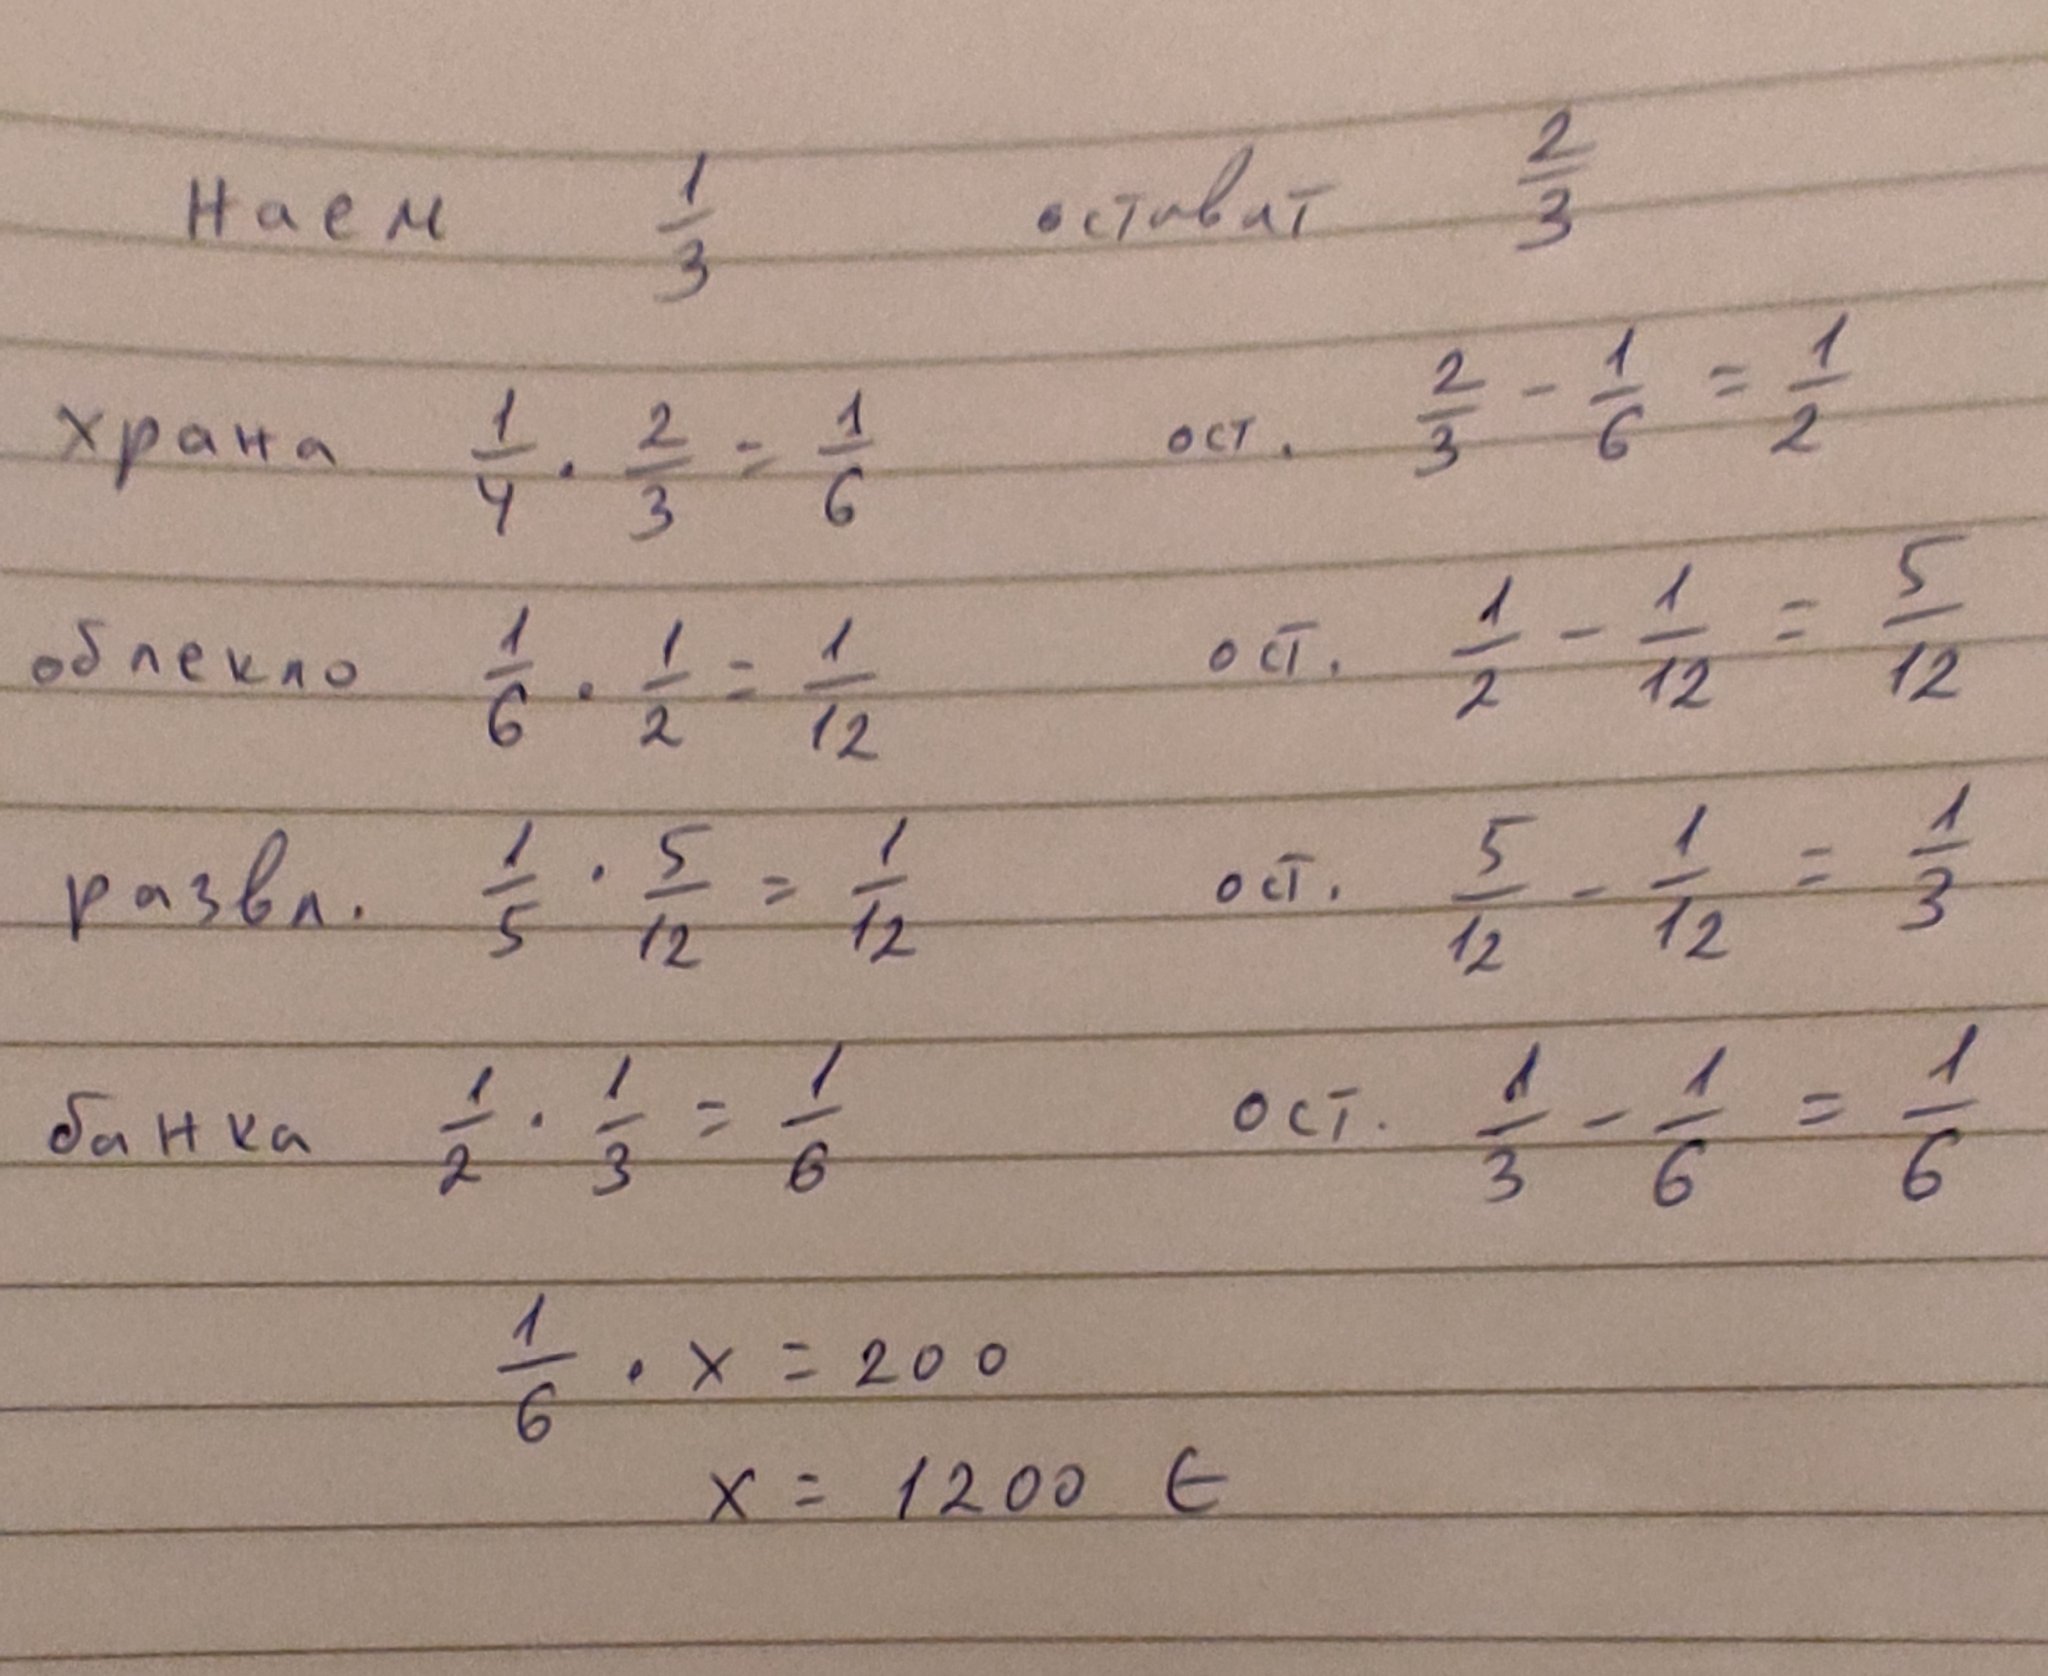 Наем 1/3 остават 2/3
храна 1/4 · 2/3 = 1/6 ост. 2/3 - 1/6 = 1/2
облекло 1/6 · 1/2 = 1/12 ост. 1/2 - 1/12 = 5/12
развл. 1/5 · 5/12 = 1/12 ост. 5/12 - 1/12 = 1/3
банка 1/2 · 1/3 = 1/6 ост. 1/3 - 1/6 = 1/6
1/6 · x = 200
x = 1200 €